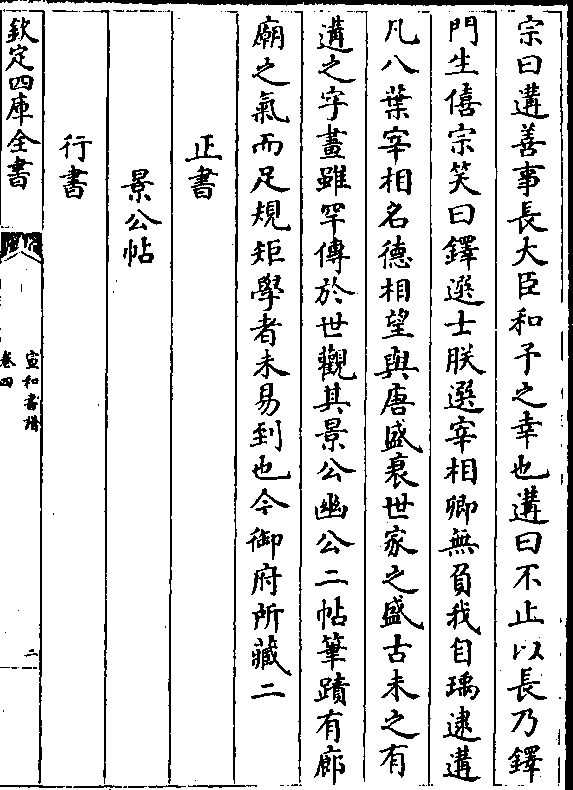 宗曰遘善事長大臣和予之幸也遘曰不止以長乃鐸
門生僖宗笑曰鐸選士朕選宰相卿無負我自瑀逮遘
凡八葉宰相名德相望與唐盛衰世家之盛古未之有
遘之字畫雖罕傳於世觀其景公幽公二帖筆蹟有廊
廟之氣而足規矩學者未易到也今御府所藏二
正書
景公帖
行書
欽定四庫全書
宣和書譜
卷四
二